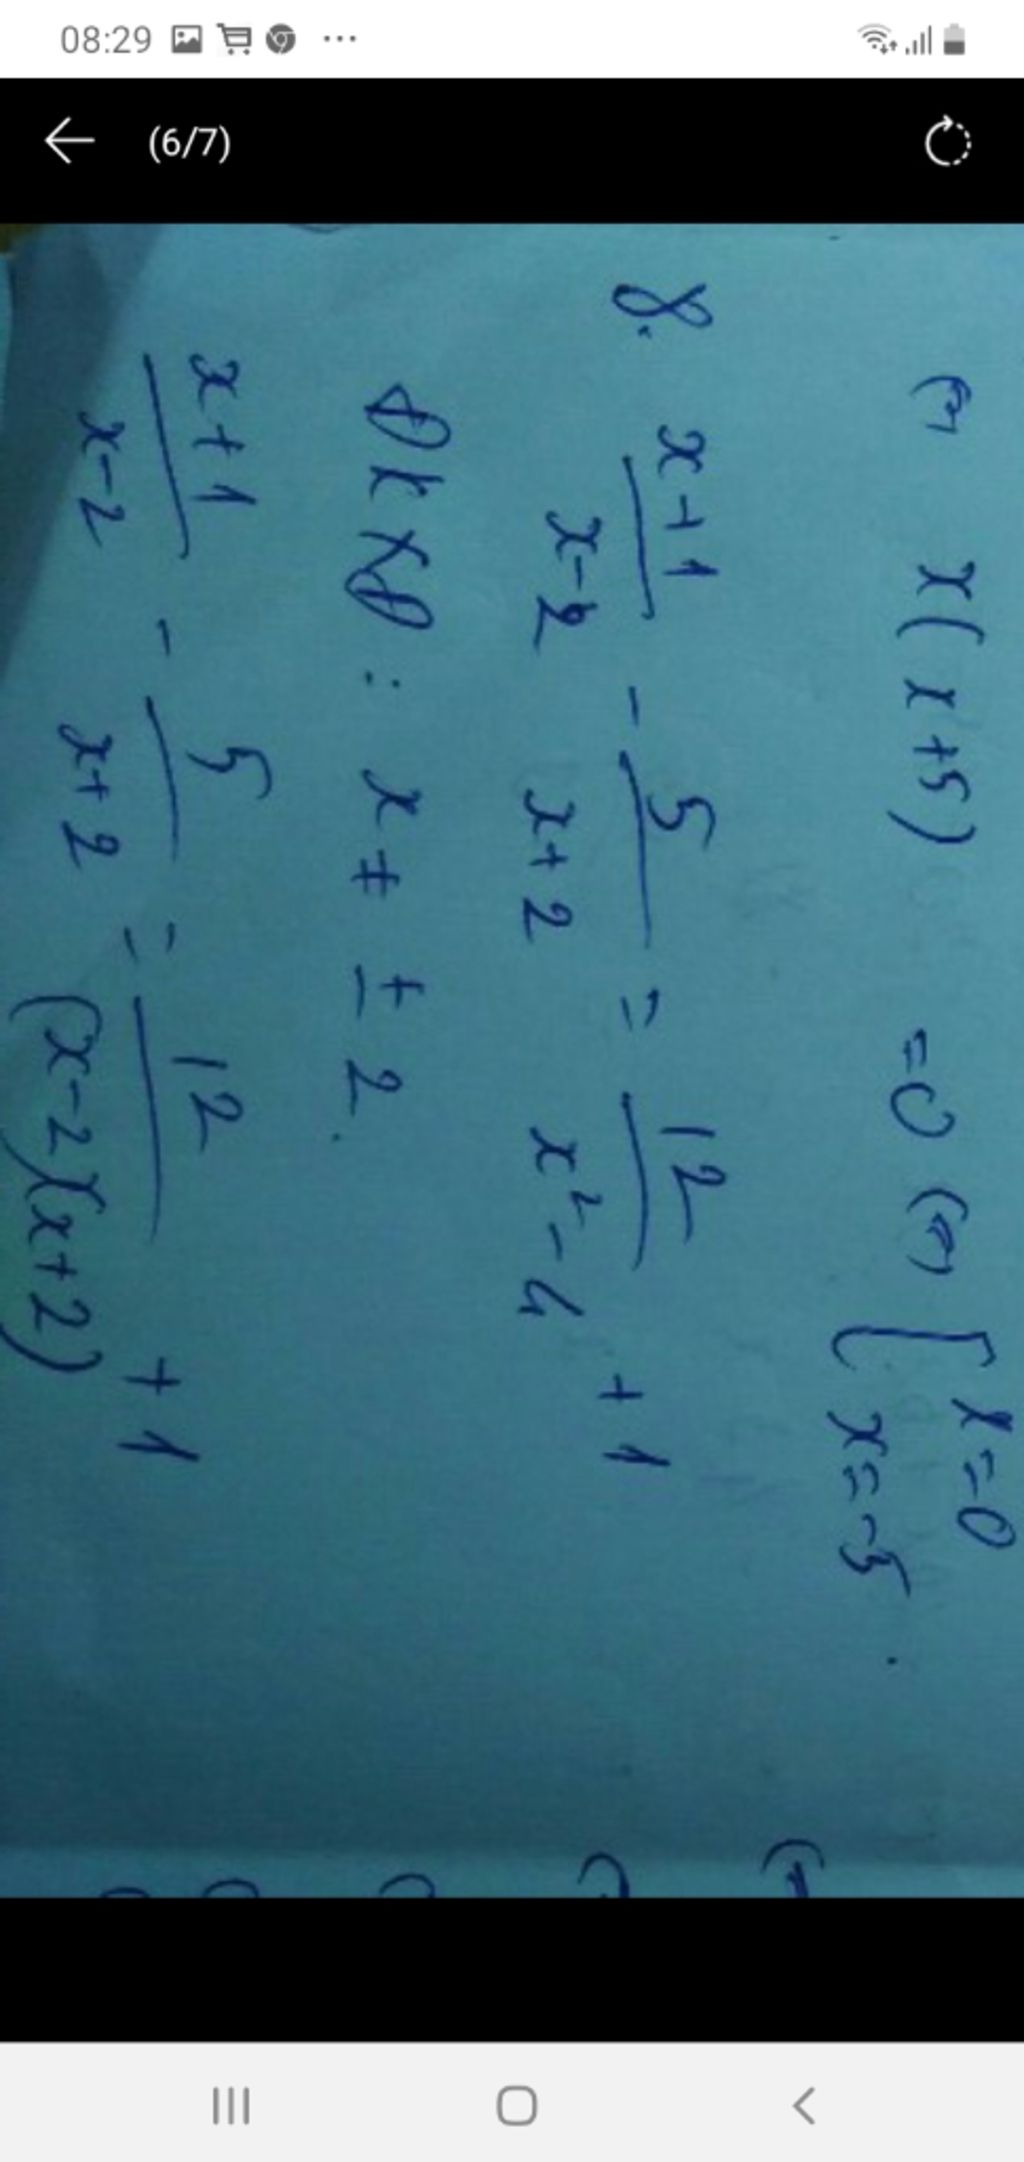 08:29
(6/7)
⇔ x(x+5) = 0 ⇔ [ x = 0
x = -5.
8. \frac{x+1}{x-2} - \frac{5}{x+2} = \frac{12}{x²-4} + 1
ĐKXĐ: x ≠ ± 2.
\frac{x+1}{x-2} - \frac{5}{x+2} = \frac{12}{(x-2)(x+2)} + 1